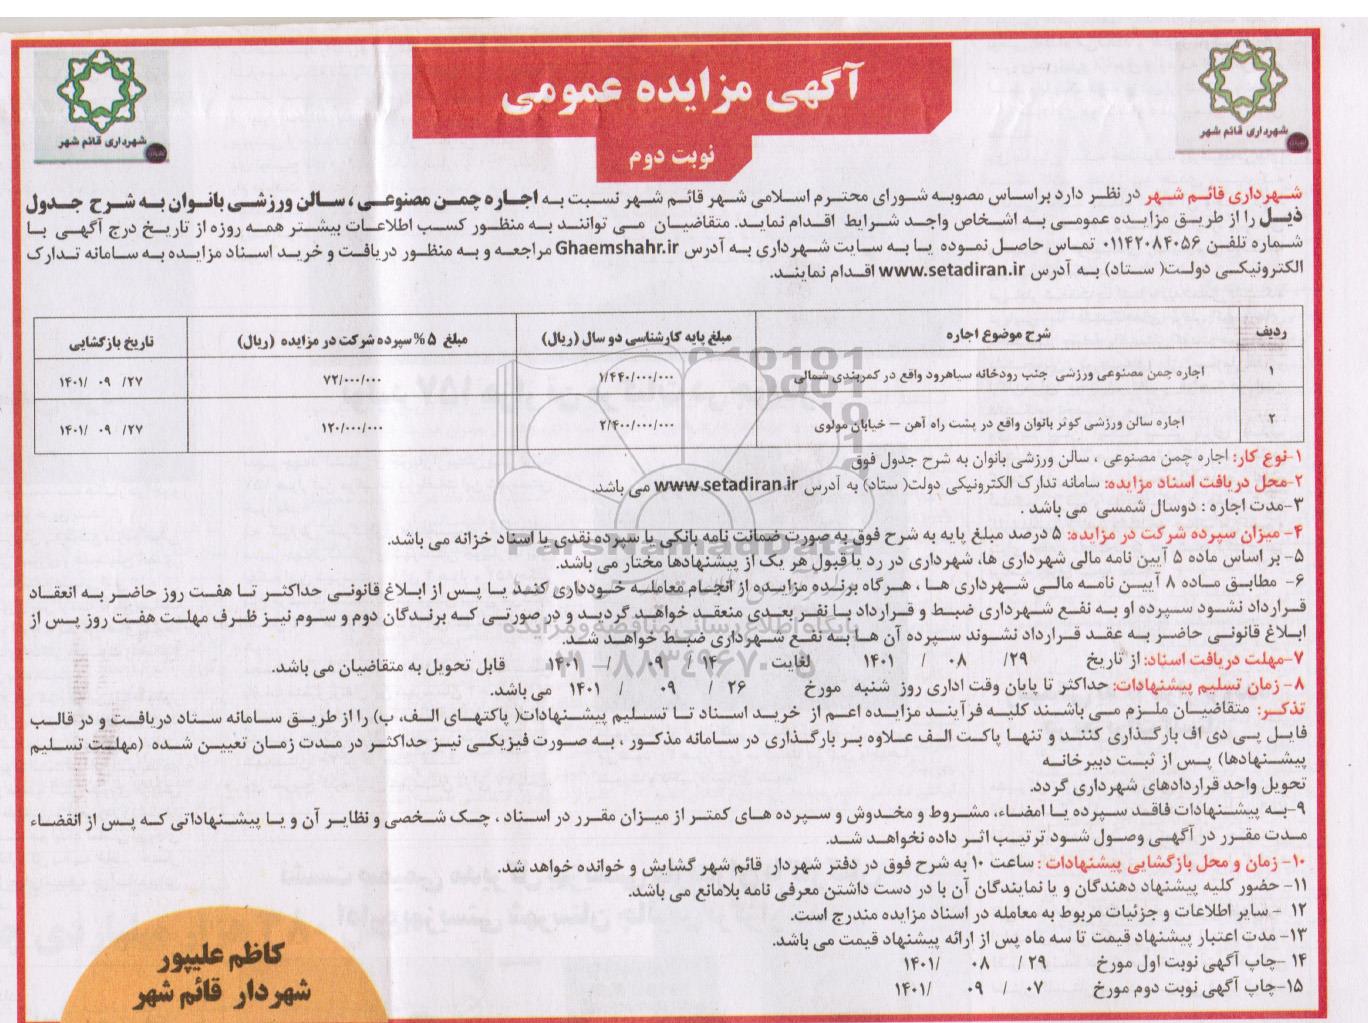 آگهی مزایده عمومی
نوبت دوم
شهرداری قائم شهر
شهرداری قائم شهر
شهرداری قائم شهر در نظر دارد براساس مصوبه شورای محترم اسلامی شهر قائم شهر نسبت به اجاره چمن مصنوعی ، سالن ورزشی بانوان به شرح جدول
ذیل را از طریق مزایده عمومی به اشخاص واجد شرایط اقدام نماید. متقاضیان می توانند به منظور کسب اطلاعات بیشتر همه روزه از تاریخ درج آگهی با
شماره تلفن ۰۱۱۴۲۰۸۴۰۵۶ تماس حاصل نموده یا به سایت شهرداری به آدرس Ghaemshahr.ir مراجعه و به منظور دریافت و خرید اسناد مزایده به سامانه تدارک
الکترونیکی دولت( ستاد) به آدرس www.setadiran.ir اقدام نمایند.
ردیف شرح موضوع اجاره مبلغ پایه کارشناسی دو سال (ریال) مبلغ ۵% سپرده شرکت در مزایده (ریال) تاریخ بازگشایی
۱ اجاره چمن مصنوعی ورزشی جنب رودخانه سیاهرود واقع در کمربندی شمالی ۱/۴۴۰/۰۰۰/۰۰۰ ۷۲/۰۰۰/۰۰۰ ۲۷/ ۰۹ /۱۴۰۱
۲ اجاره سالن ورزشی کوثر بانوان واقع در پشت راه آهن – خیابان مولوی ۲/۴۰۰/۰۰۰/۰۰۰ ۱۲۰/۰۰۰/۰۰۰ ۲۷/ ۰۹ /۱۴۰۱
۱-نوع کار: اجاره چمن مصنوعی ، سالن ورزشی بانوان به شرح جدول فوق
۲-محل دریافت اسناد مزایده: سامانه تدارک الکترونیکی دولت( ستاد) به آدرس www.setadiran.ir می باشد.
۳-مدت اجاره : دوسال شمسی می باشد .
۴- میزان سپرده شرکت در مزایده: ۵ درصد مبلغ پایه به شرح فوق به صورت ضمانت نامه بانکی یا سپرده نقدی یا اسناد خزانه می باشد.
۵- بر اساس ماده ۵ آیین نامه مالی شهرداری ها، شهرداری در رد یا قبول هر یک از پیشنهادها مختار می باشد.
۶- مطابق ماده ۸ آیین نامه مالی شهرداری ها ، هرگاه برنده مزایده از انجام معامله خودداری کند یا پس از ابلاغ قانونی حداکثر تا هفت روز حاضر به انعقاد
قرارداد نشود سپرده او به نفع شهرداری ضبط و قرارداد با نفر بعدی منعقد خواهد گردید و در صورتی که برندگان دوم و سوم نیز ظرف مهلت هفت روز پس از
ابلاغ قانونی حاضر به عقد قرارداد نشوند سپرده آن ها به نفع شهرداری ضبط خواهد شد.
۷-مهلت دریافت اسناد: از تاریخ ۲۹/ ۰۸ / ۱۴۰۱ لغایت ۱۴ / ۰۹ / ۱۴۰۱ قابل تحویل به متقاضیان می باشد.
۸- زمان تسلیم پیشنهادات: حداکثر تا پایان وقت اداری روز شنبه مورخ ۲۶ / ۰۹ / ۱۴۰۱ می باشد.
تذکر: متقاضیان ملزم می باشند کلیه فرآیند مزایده اعم از خرید اسناد تا تسلیم پیشنهادات( پاکتهای الف، ب) را از طریق سامانه ستاد دریافت و در قالب
فایل پی دی اف بارگذاری کنند و تنها پاکت الف علاوه بر بارگذاری در سامانه مذکور ، به صورت فیزیکی نیز حداکثر در مدت زمان تعیین شده (مهلت تسلیم
پیشنهادها) پس از ثبت دبیرخانه
تحویل واحد قراردادهای شهرداری گردد.
۹-به پیشنهادات فاقد سپرده یا امضاء، مشروط و مخدوش و سپرده های کمتر از میزان مقرر در اسناد ، چک شخصی و نظایر آن و یا پیشنهاداتی که پس از انقضاء
مدت مقرر در آگهی وصول شود ترتیب اثر داده نخواهد شد.
۱۰- زمان و محل بازگشایی پیشنهادات : ساعت ۱۰ به شرح فوق در دفتر شهردار قائم شهر گشایش و خوانده خواهد شد.
۱۱- حضور کلیه پیشنهاد دهندگان و یا نمایندگان آن با در دست داشتن معرفی نامه بلامانع می باشد.
۱۲ - سایر اطلاعات و جزئیات مربوط به معامله در اسناد مزایده مندرج است.
۱۳- مدت اعتبار پیشنهاد قیمت تا سه ماه پس از ارائه پیشنهاد قیمت می باشد.
۱۴ -چاپ آگهی نوبت اول مورخ ۲۹ / ۰۸ /۱۴۰۱
۱۵-چاپ آگهی نوبت دوم مورخ ۰۷ / ۰۹ /۱۴۰۱
کاظم علیپور
شهردار قائم شهر
ParsNamadData
پایگاه اطلاع رسانی مناقصه و مزایده
۰۲۱-۸۸۳۴۹۶۷۰-۵